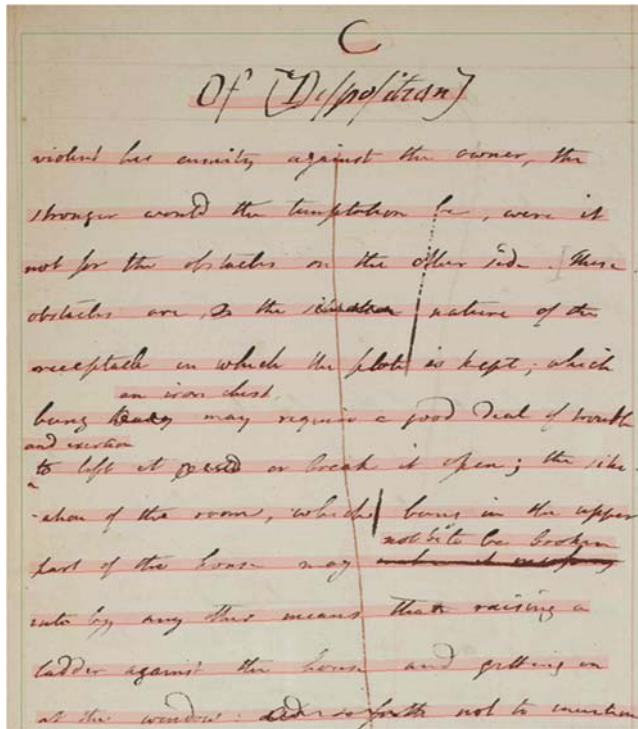 C
Of [Disposition]
violent his enmity against the owner, the
stronger would the temptation be, were it
not for the obstacles on the other side. These
obstacles are, the nature of the
receptacle in which the plate is kept; which
an iron chest
being may require a good deal of trouble
and exertion
to lift it or break it open; the situ-
-ation of the room, which being in the upper
not be to be broken
part of the house may
into by any other means than raising a
ladder against the house and getting in
at the window: not to mention